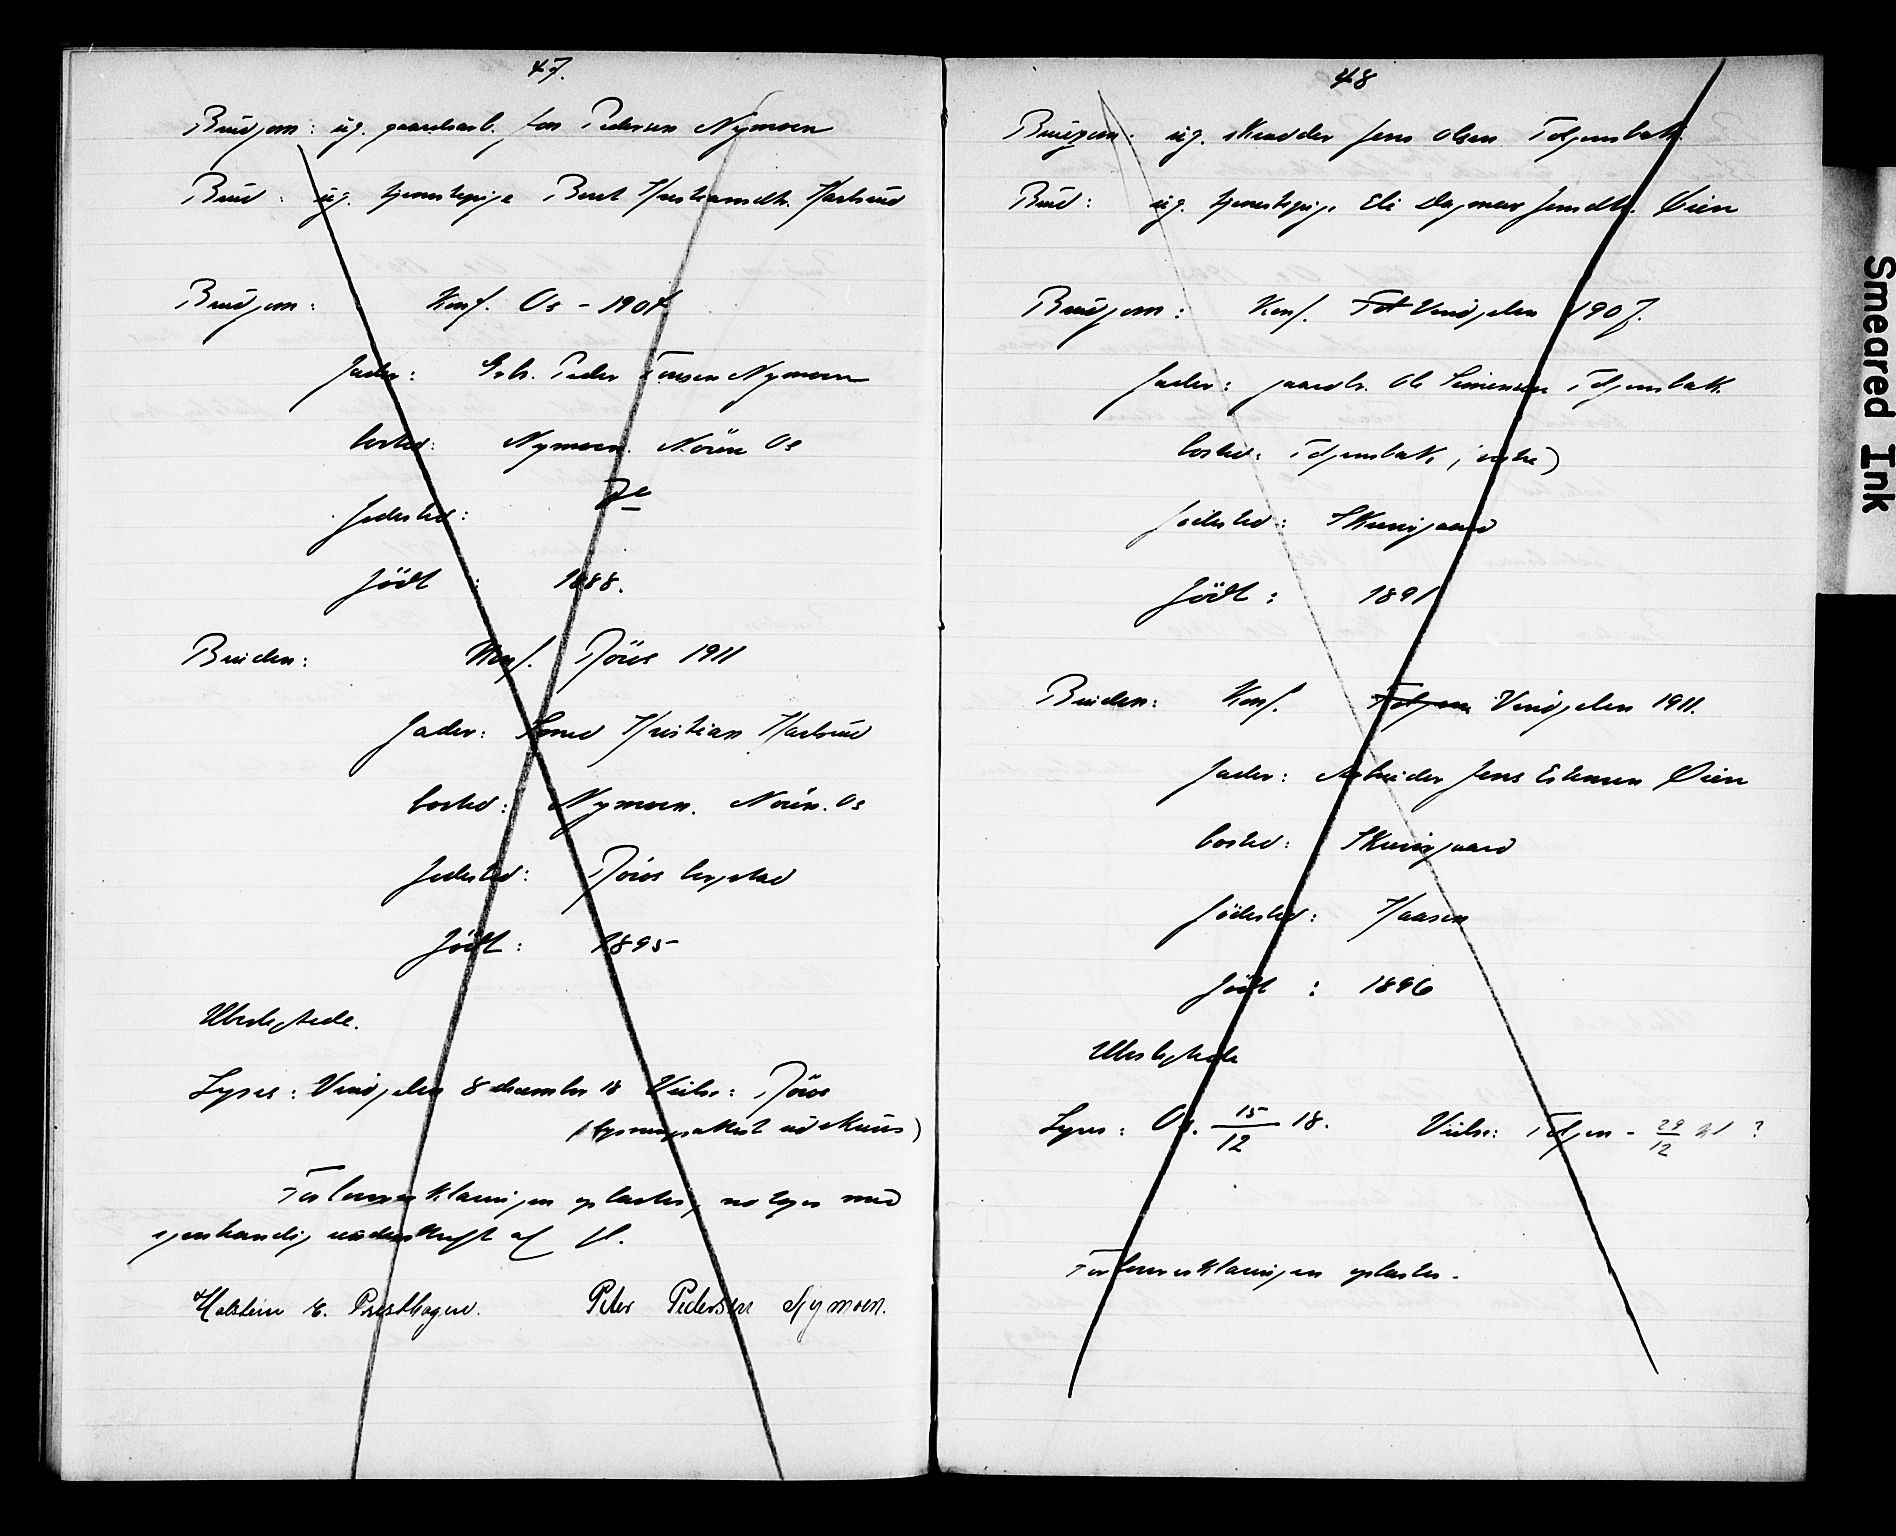 47.
Brudgom: ug. gaardsarb. Jon Pedersen Nymoen
Brud: ug. tjenestepige Beret Kristiansdtr. Harborg
Brudgom: Konf. Os - 1904
Fader: Grb. Peder Jonsen Nymoen
bosted: Nymoen. Nören Os
Födested: Do
Födt: 1888.
Bruden: Konf. Röros 1911
Fader: Kristian
bosted: Nymoen. Nören. Os
Födested: Röros bergstad
Födt: 1895
Ubeslegtede.
Lyses: Vingelen 8 december 18 Vielse: Röros
(lysningsattest udskrives)
Forlovererklæringen oplæstes, vedtoges med
egenhændig underskrift af fl.
Halstein E. Presthagen. Peter Pedersen Nymoen.
48
Brudgom: ug. skrædder Jens Olsen Tolgensbak.
Brud: ug. tjenestepige Eli Dagmar Jensdtr. Öien
Brudgom: Konf. Tol Vingelen 1907.
Fader: gaardbr. Ole Simensen Tolgensbak.
bosted: Tolgensbak (östre)
födested: Skuvgaard
Födt: 1891
Bruden: Konf. Tolgen Vingelen 1911.
Fader: Arbeider Jens Estensen Öien
bosted: Skuvgaard
Födested: Haasen
Födt: 1896
Ubeslegtede
Lyses: Os. 15/12 18. Vielse: Tolgen - 29/12 kl ?
Forlovererklæringen oplæstes.
Smeared Ink